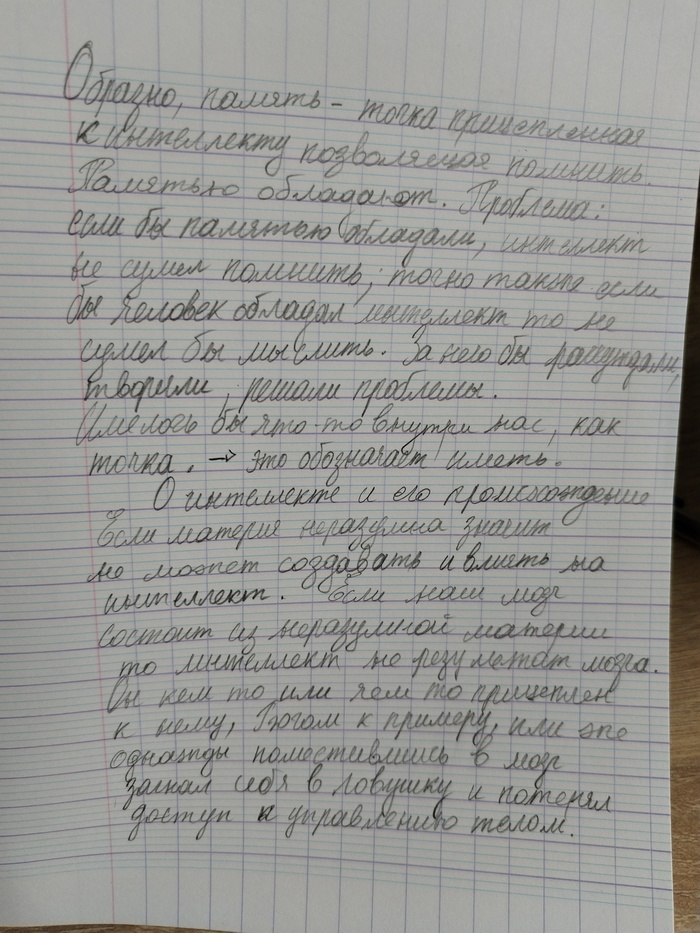 Образно, память - точка прицепленная
к интеллекту позволяющая помнить.
Памятью обладают. Проблема:
если бы памятью обладали, интеллект
не сумел помнить; точно также если
бы человек обладал интеллект то не
сумел бы мыслить. За него бы рассуждали,
творили, решали проблемы.
Имелось бы что-то внутри нас, как
точка. → это обозначает иметь.
О интеллекте и его происхождение
Если материя неразумна значит
не может создавать и влиять на
интеллект. Если наш мозг
состоит из неразумной материи
то интеллект не результат мозга.
Он кем то или чем то прицеплен
к нему, Богом к примеру, или же
однажды поместившись в мозг
загнал себя в ловушку и потерял
доступ к управлению телом.